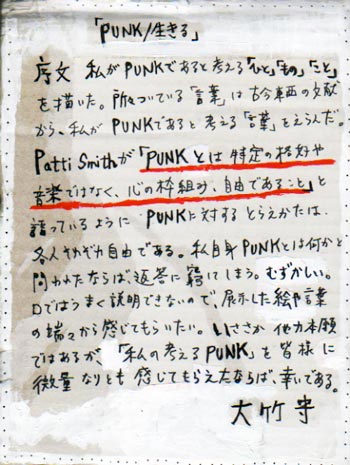 「PUNK/生きる」
序文 私がPUNKであると考える「ひと」「もの」「こと」
を描いた。所々ついている「言葉」は古今東西の文献
から、私がPUNKであると考える「言葉」をえらんだ。
Patti Smithが「PUNKとは特定の格好や
音楽ではなく、心の枠組み、自由であること」と
語っているように PUNKに対するとらえかたは、
各人それぞれ自由である。私自身PUNKとは何かと
問われたならば、返答に窮してしまう。むずかしい。
口ではうまく説明できないので、展示した絵や言葉
の端々から感じてもらいたい。いささか他力本願
ではあるが、「私の考えるPUNK」を皆様に
微量なりとも感じてもらえたならば、幸いである。
大竹守